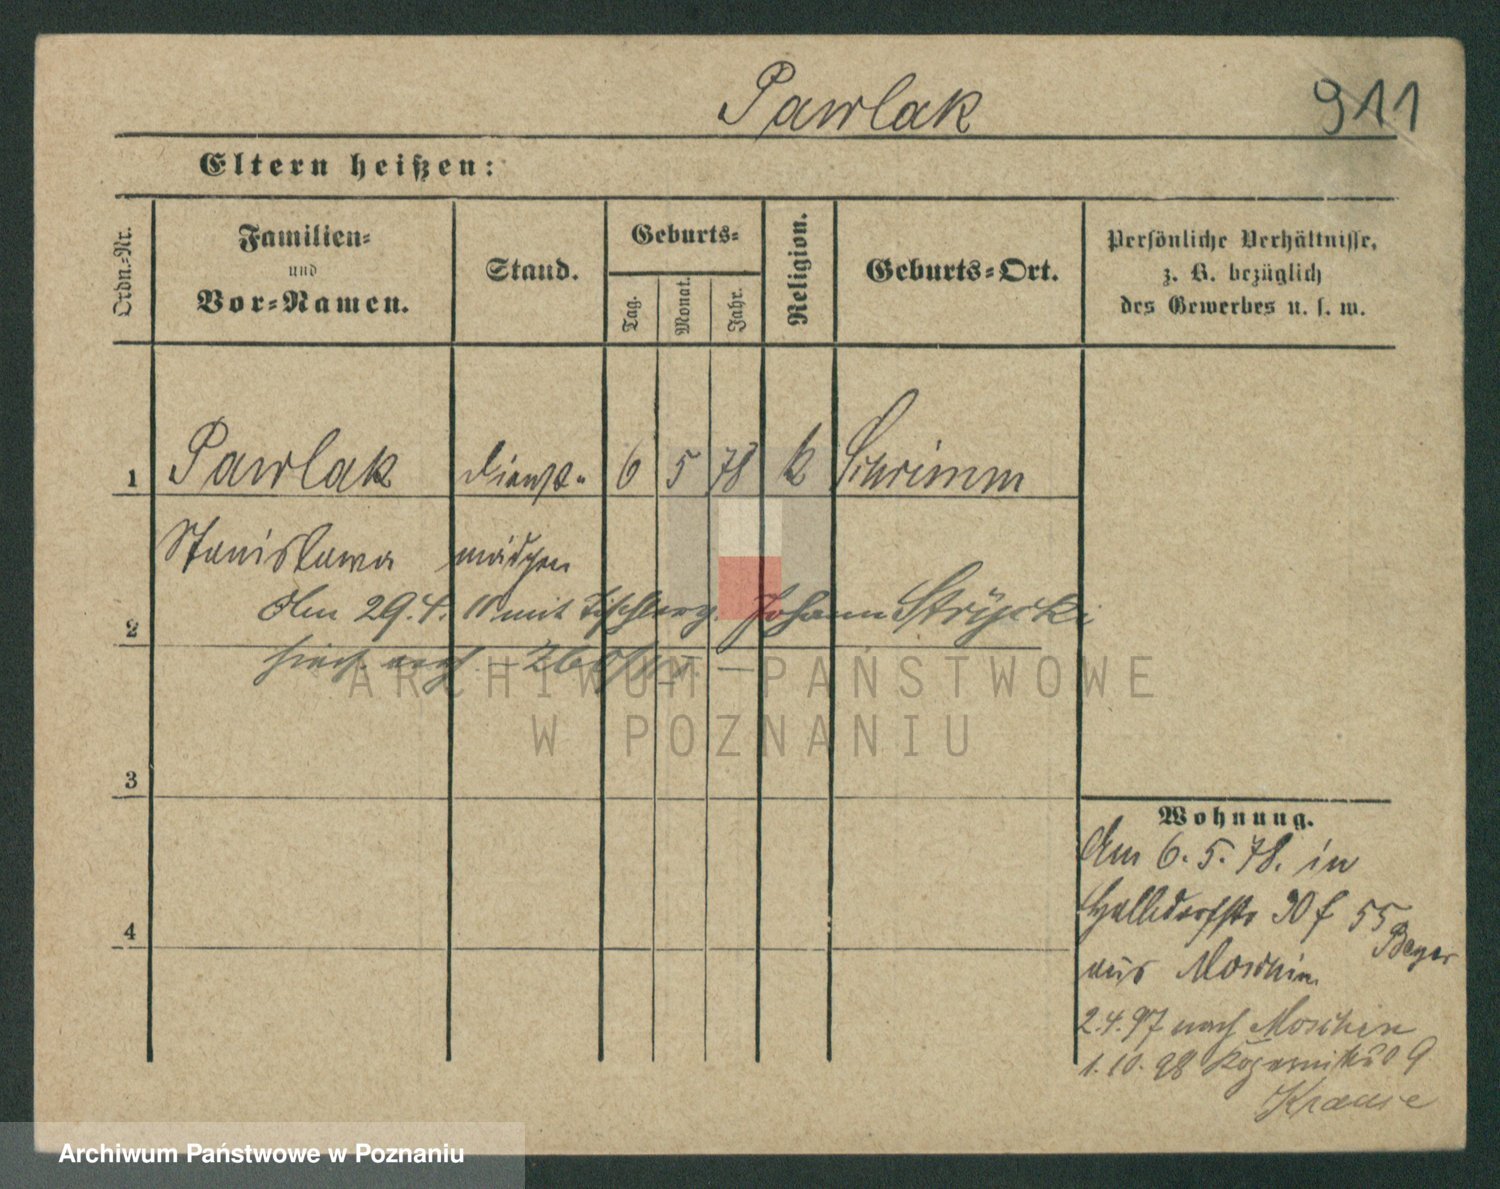 Pawlak
911
Eltern heißen:
Ordn.-Nr.
Familien-
und
Vor-Namen.
Stand.
Geburts-
Tag.
Monat.
Jahr.
Religion.
Geburts-Ort.
Persönliche Verhältnisse,
z. B. bezüglich
des Gewerbes u. s. w.
1 Pawlak Dienst- 6 5 78 k Schrimm
Stanislawa mädchen
2 Am 29.4. mit Johann Stryski
nach
3
4
Wohnung.
Am 6. 5. 78. in
55
Beyer
aus Moschin
2.4.97 nach Moschin
1.10.98 9
Krause
ARCHIWUM PAŃSTWOWE
W POZNANIU
Archiwum Państwowe w Poznaniu